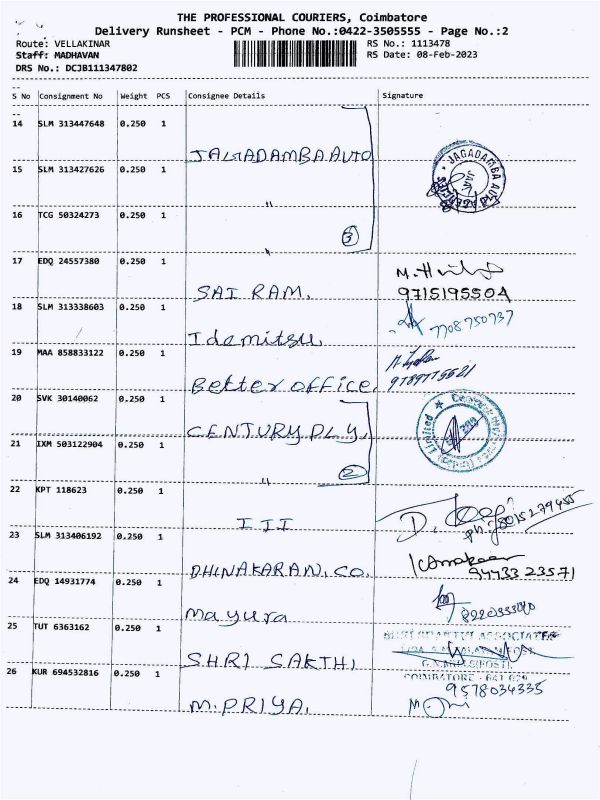 THE PROFESSIONAL COURIERS, Coimbatore
Delivery Runsheet - PCM - Phone No.:0422-3505555 - Page No.:2
Route: VELLAKINAR RS No.: 1113478
Staff: MADHAVAN RS Date: 08-Feb-2023
DRS No.: DCJB111347802
S No Consignment No Weight PCS Consignee Details Signature
14 SLM 313447648 0.250 1
JAGADAMBA AUTO
15 SLM 313427626 0.250 1
JAGADAMBA AUTO
"
16 TCG 50324273 0.250 1
3
"
17 EDQ 24557380 0.250 1
SAI RAM. 9715195504
18 SLM 313338603 0.250 1
Idemitsu 7708750737
19 MAA 858833122 0.250 1
Better office. 9789775521
20 SVK 30140062 0.250 1
CENTURY PLY. Limited
21 IXM 503122904 0.250 1
2
"
22 KPT 118623 0.250 1
III Ph: 8015279455
23 SLM 313406192 0.250 1
DHINAKARAN. CO. 94433 23571
24 EDQ 14931774 0.250 1
Mayura
25 TUT 6363162 0.250 1
ASSOCIATES
SHRI SAKTHI
COIMBATORE - 641 029
26 KUR 694532816 0.250 1 9578034335
M. PRIYA.